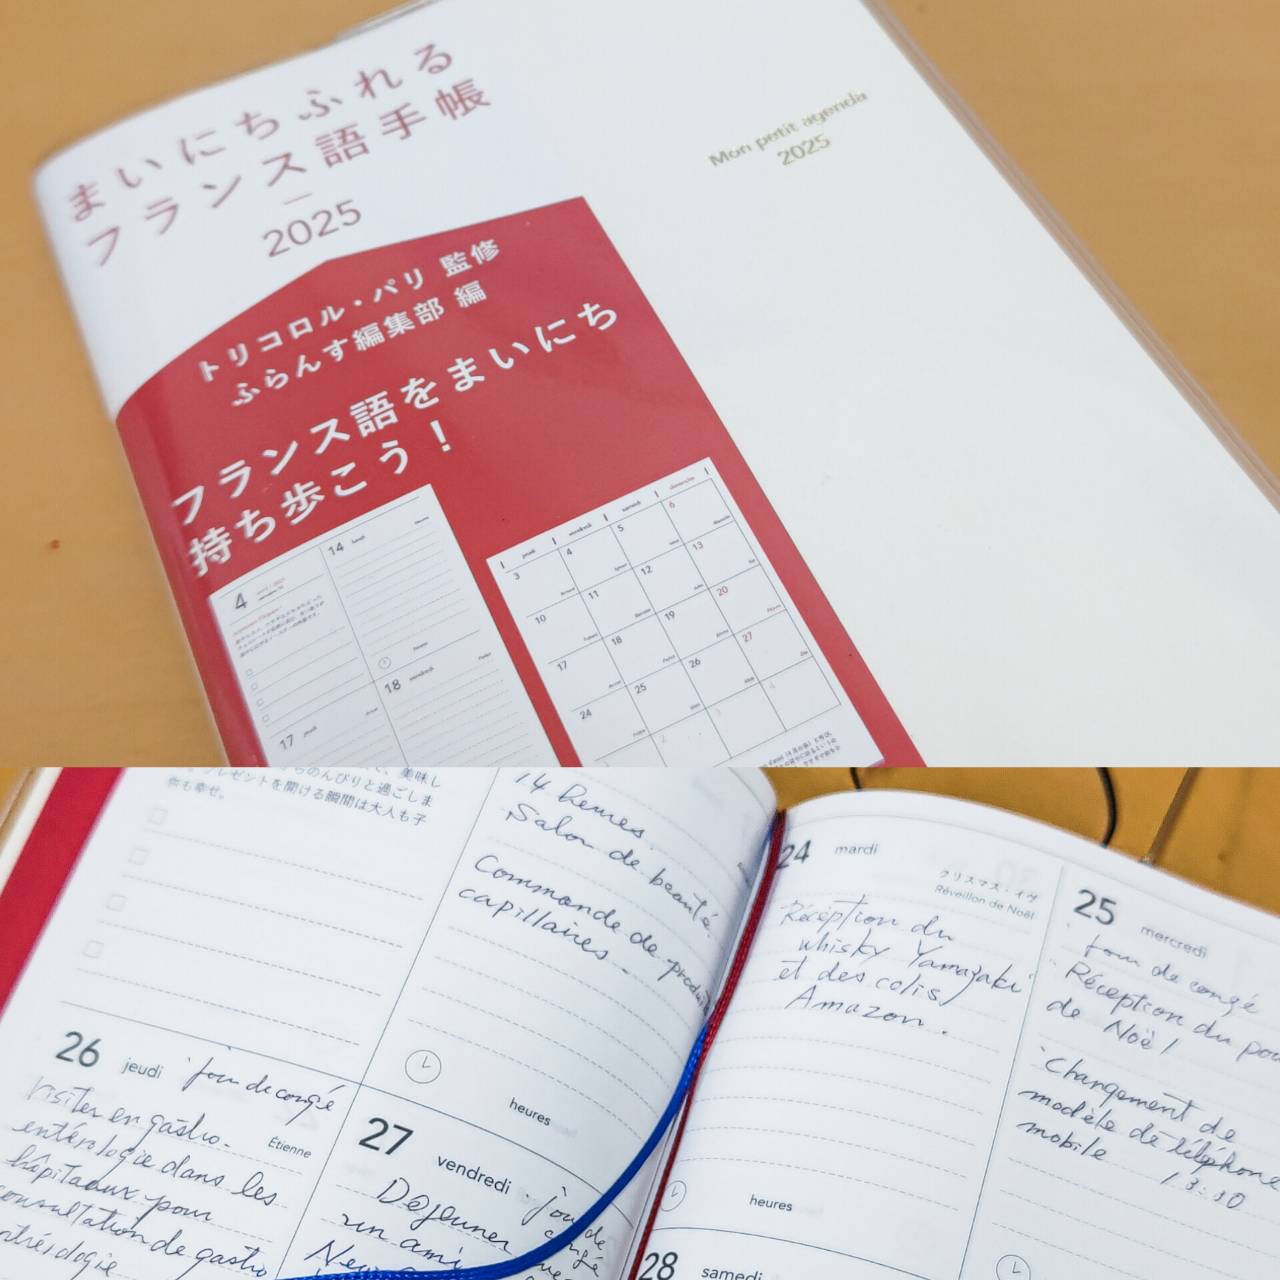 まいにちふれる
フランス語手帳
2025
トリコロル・パリ 監修
ふらんす編集部 編
フランス語をまいにち
持ち歩こう！
Mon petit agenda
2025
14 lundi
4
17 jeudi
18 vendredi
jeudi vendredi samedi dimanche
3 4 5 6
10 11 12 13
17 18 19 20
24 25 26 27
2 3 4
美味し
らのんびりと過ごしま
プレゼントを開ける瞬間は大人も子
供も幸せ。
14 heures
Salon de beauté.
Commande de produits
capillaires.
heures
26 jeudi jour de congé
Étienne
Visiter en gastro-
entérologie dans les
hôpitaux pour
consultation de gastro
27 vendredi jour de
congé
Déjeuner avec
un ami
24 mardi
クリスマス・イヴ
Réveillon de Noël
Réception du
whisky Yamazaki
et des colis
Amazon.
heures
25 mercredi
jour de congé
Réception du
de Noël
Changement de
modèle de téléphone
mobile 13:30
28 samedi